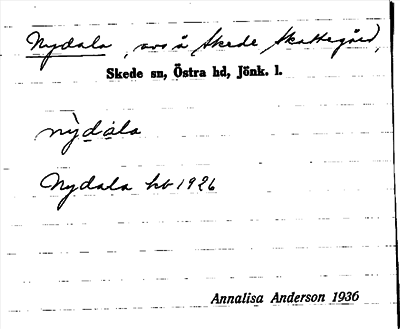 Nydala, avs å Skede Skattegård,
Skede sn, Östra hd, Jönk. l.
nỳdála
Nydala hb 1926
Annalisa Anderson 1936